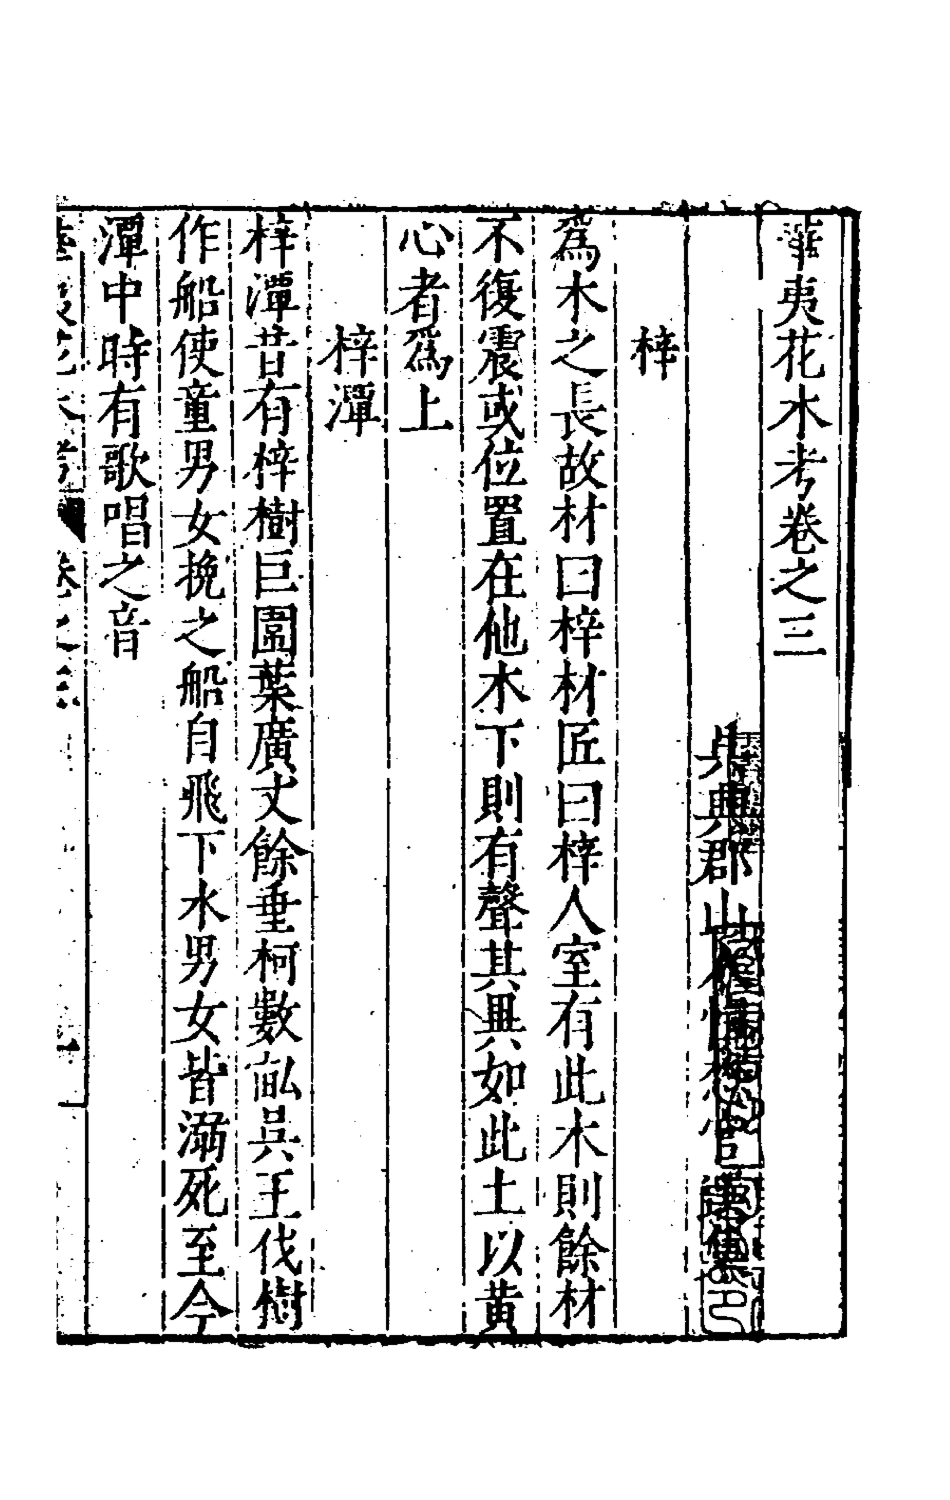 華夷花木考卷之三
吳興郡山人愼懋官 集
梓
爲木之長故材曰梓材匠曰梓人室有此木則餘材
不復震或位置在他木下則有聲其異如此土以黄
心者爲上
梓潭
梓潭昔有梓樹巨圍葉廣丈餘垂柯數畝吳王伐樹
作船使童男女挽之船自飛下水男女皆溺死至今
潭中時有歌唱之音
華夷花木考 卷之三 一